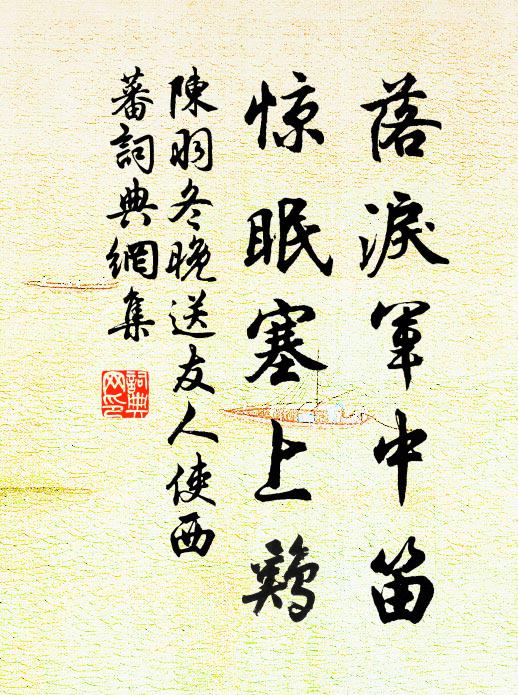 落淚軍中笛
惊眠塞上鷄
陳羽冬晚送友人使西
蕃詞典網集
詞典
网印